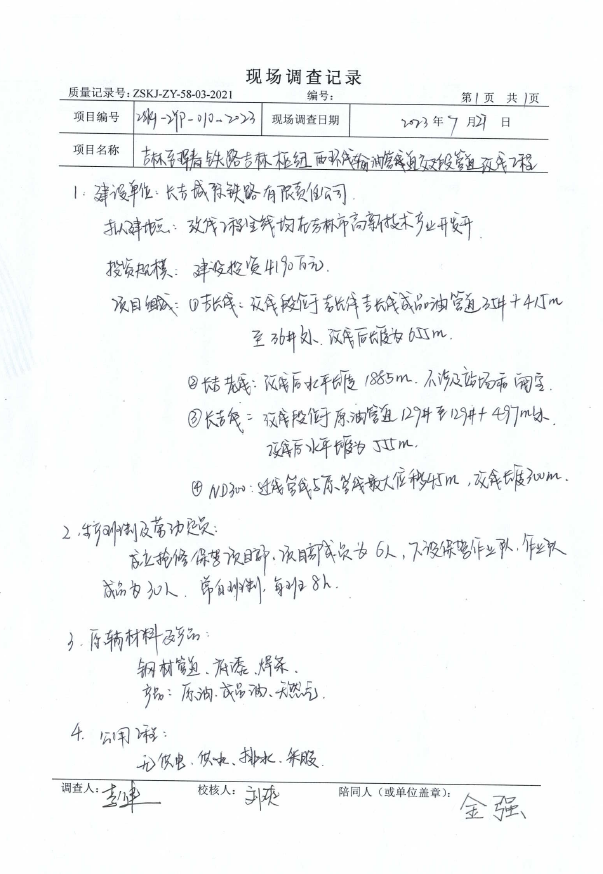 现场调查记录
质量记录号: ZSKJ-ZY-58-03-2021 编号: 第1页 共1页
项目编号 ZSKJ-ZYP-010-2023 现场调查日期 2023年7月27日
项目名称 吉林至珲春铁路吉林枢纽西环线输油管线通交叉段管道改线工程
1. 建设单位: 长吉城际铁路有限责任公司.
拟建地点: 改线工程全线均在吉林市高新技术产业开发
投资规模: 建设投资4190万元.
项目组成: ①吉长线: 改线段位于吉长线成品油管道35#+415m
至36#处. 改线后长度为655m.
②长吉 线: 改线后水平长度1885m. 不涉及站场和阀室.
③长吉线: 改线段位于原油管道129#至129#+497m处.
改线后水平长度为555m.
④ND300: 迁线管线与原管线最大位移45m, 改线长度300m.
2. 生产班制及劳动定员:
成立抢修保驾项目部, 项目部成员为6人, 下设保驾作业队, 作业队
成员为30人. 常白班制, 每班8h.
3. 原辅材料及产品:
钢材管道、底漆、焊条.
产品: 原油、成品油、天然气.
4. 公用工程:
无供电、供水、排水、采暖.
调查人: 校核人: 刘爽 陪同人（或单位盖章）: 金强